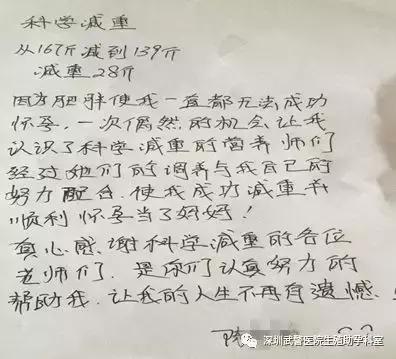 科学减重
从167斤减到139斤
减重28斤
因为肥胖使我一直都无法成功
怀孕，一次偶然的机会让我
认识了科学减重的营养师们
经过她们的调养与我自己的
努力配合，使我成功减重并
顺利怀孕当了妈妈！
真心感谢科学减重的各位
老师们，是你们认真努力的
帮助我，让我的人生不再有遗憾、
陈
深圳武警医院生殖助孕科室